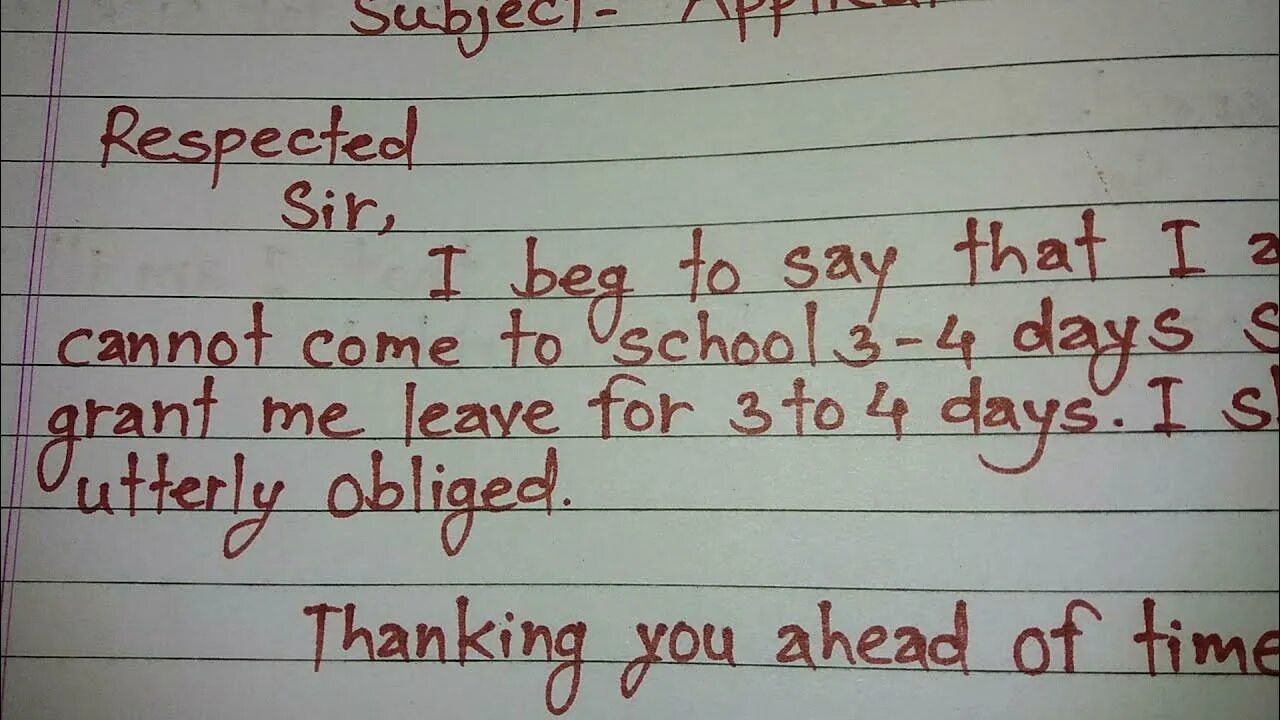 Subject-
Respected
Sir,
I beg to say that I
cannot come to school 3-4 days
grant me leave for 3 to 4 days. I
utterly obliged.
Thanking you ahead of time